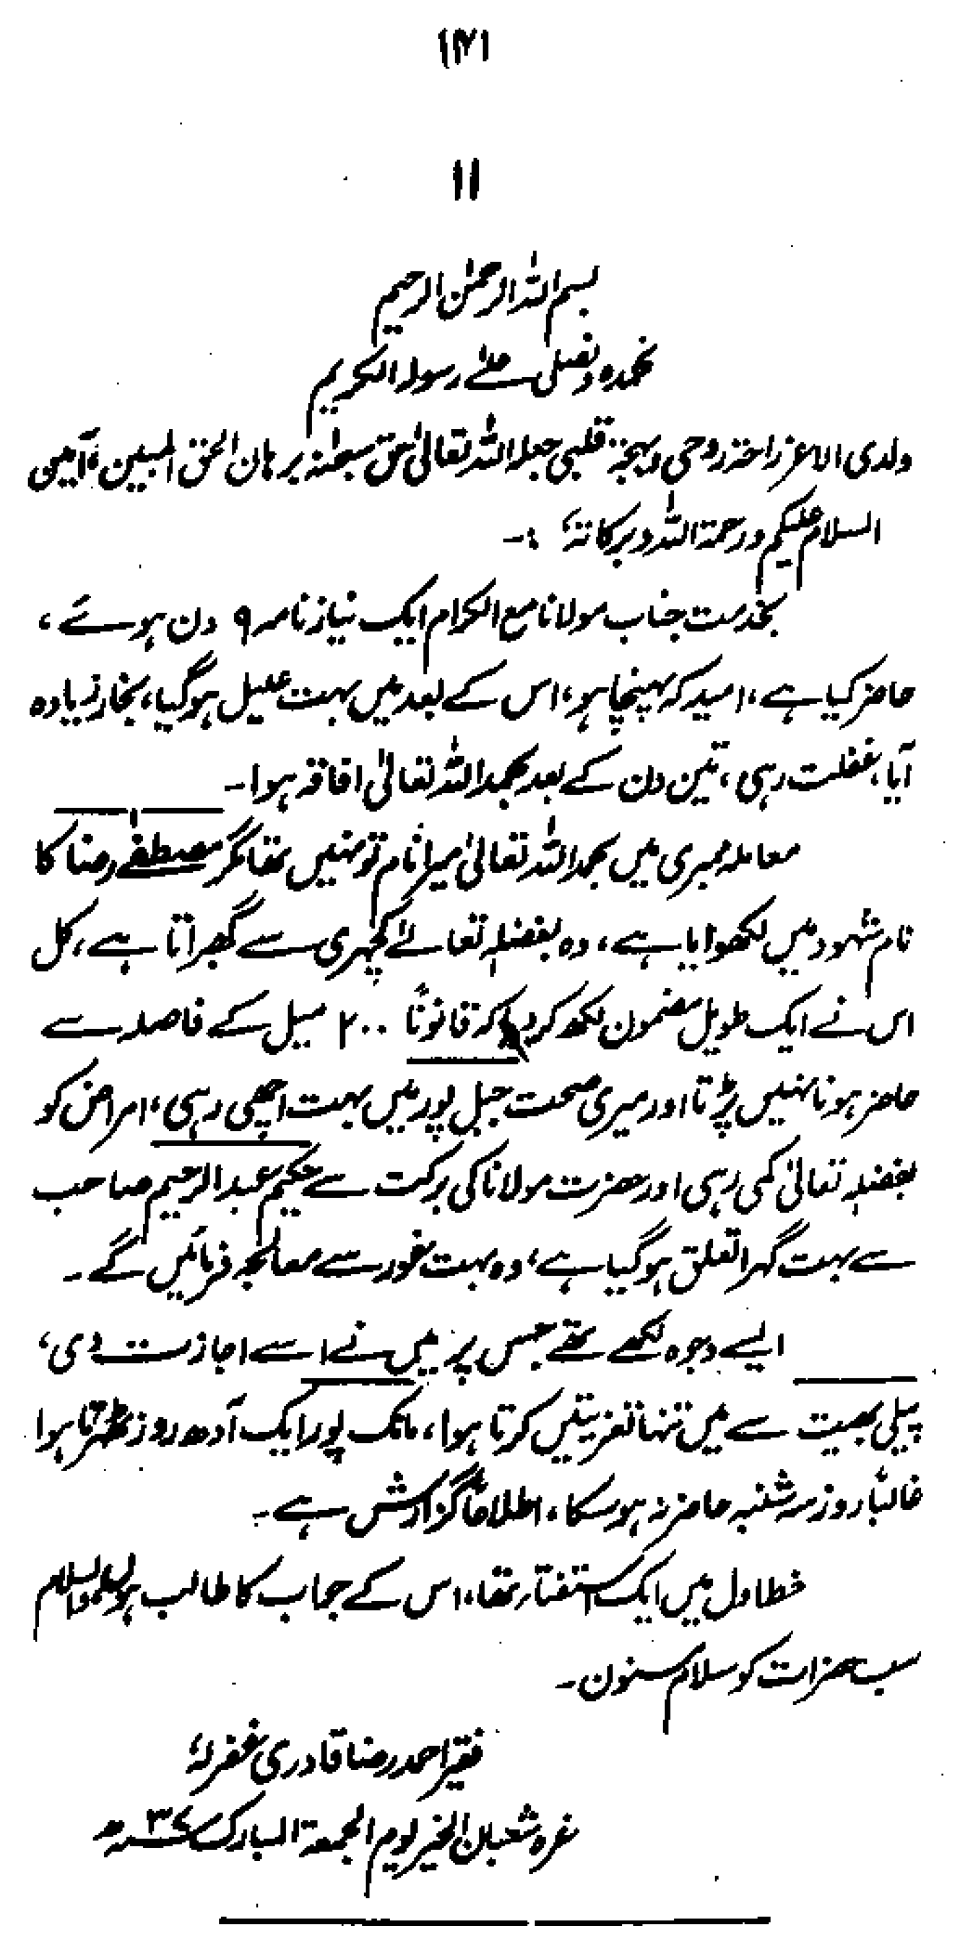 ۱۴۱
۱۱
بسم اللہ الرحمٰن الرحیم
نحمدہ ونصلی علےٰ رسولہ الکریم
ولدی الاعز راحۃ روحی وبہجۃ قلبی جعلہ اللہ تعالیٰ حق سبحٰنہ برہان الحق المبین، آمین
السلام علیکم ورحمۃ اللہ وبرکاتہٗ :-
بخدمت جناب مولانا مع الکرام ایک نیاز نامہ ۹ دن ہوئے،
حاضر کیا ہے، امید کہ پہنچا ہو، اس کے بعد میں بہت علیل ہوگیا، بخار زیادہ
آیا، غفلت رہی، تین دن کے بعد بحمد اللہ تعالیٰ افاقہ ہوا۔
معاملہ ممبری میں بحمد اللہ تعالیٰ میرا نام تو نہیں تھا مگر مصطفٰے رضا کا
نام شہود میں لکھوایا ہے، وہ بفضلہٖ تعالےٰ کچہری سے گھبراتا ہے، کل
اس نے ایک طویل مضمون لکھ کر دیا کہ قانوناً ۲۰۰ میل کے فاصلہ سے
حاضر ہونا نہیں پڑتا اور میری صحت جبل پور میں بہت اچھی رہی، امراض کو
بفضلہٖ تعالیٰ کمی رہی اور حضرت مولانا کی برکت سے حکیم عبد الرحیم صاحب
سے بہت گہرا تعلق ہوگیا ہے، وہ بہت غور سے معالجہ فرمائیں گے۔
ایسے وجوہ لکھے تھے جس پر میں نے اسے اجازت دی،
پیلی بھیت سے میں تنہا تعزیتیں کرتا ہوا، مانک پور ایک آدھ روز ٹھہرتا ہوا
غالباً روز سہ شنبہ حاضر نہ ہوسکا، اطلاعاً گزارش ہے۔
خط اول میں ایک استفتاء تھا، اس کے جواب کا طالب ہوں والسلام
سب حضرات کو سلام مسنون۔
فقیر احمد رضا قادری غفرلہٗ
غرہ شعبان الخیر یوم الجمعۃ المبارکہ ۳۷ھ